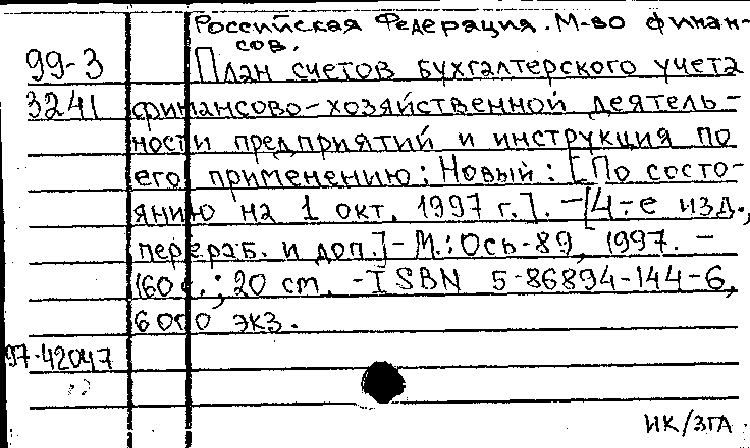 Российская Федерация. М-во финан-
сов.
99-3 План счетов бухгалтерского учета
3241 финансово-хозяйственной деятель-
ности предприятий и инструкция по
его применению: Новый: [По состо-
янию на 1 окт. 1997 г.]. -[4-е изд.,
перераб. и доп.]-М.: Ось-89, 1997. -
160 с.; 20 см. -ISBN 5-86894-144-6,
6000 экз.
97-42047
ИК/ЗГА